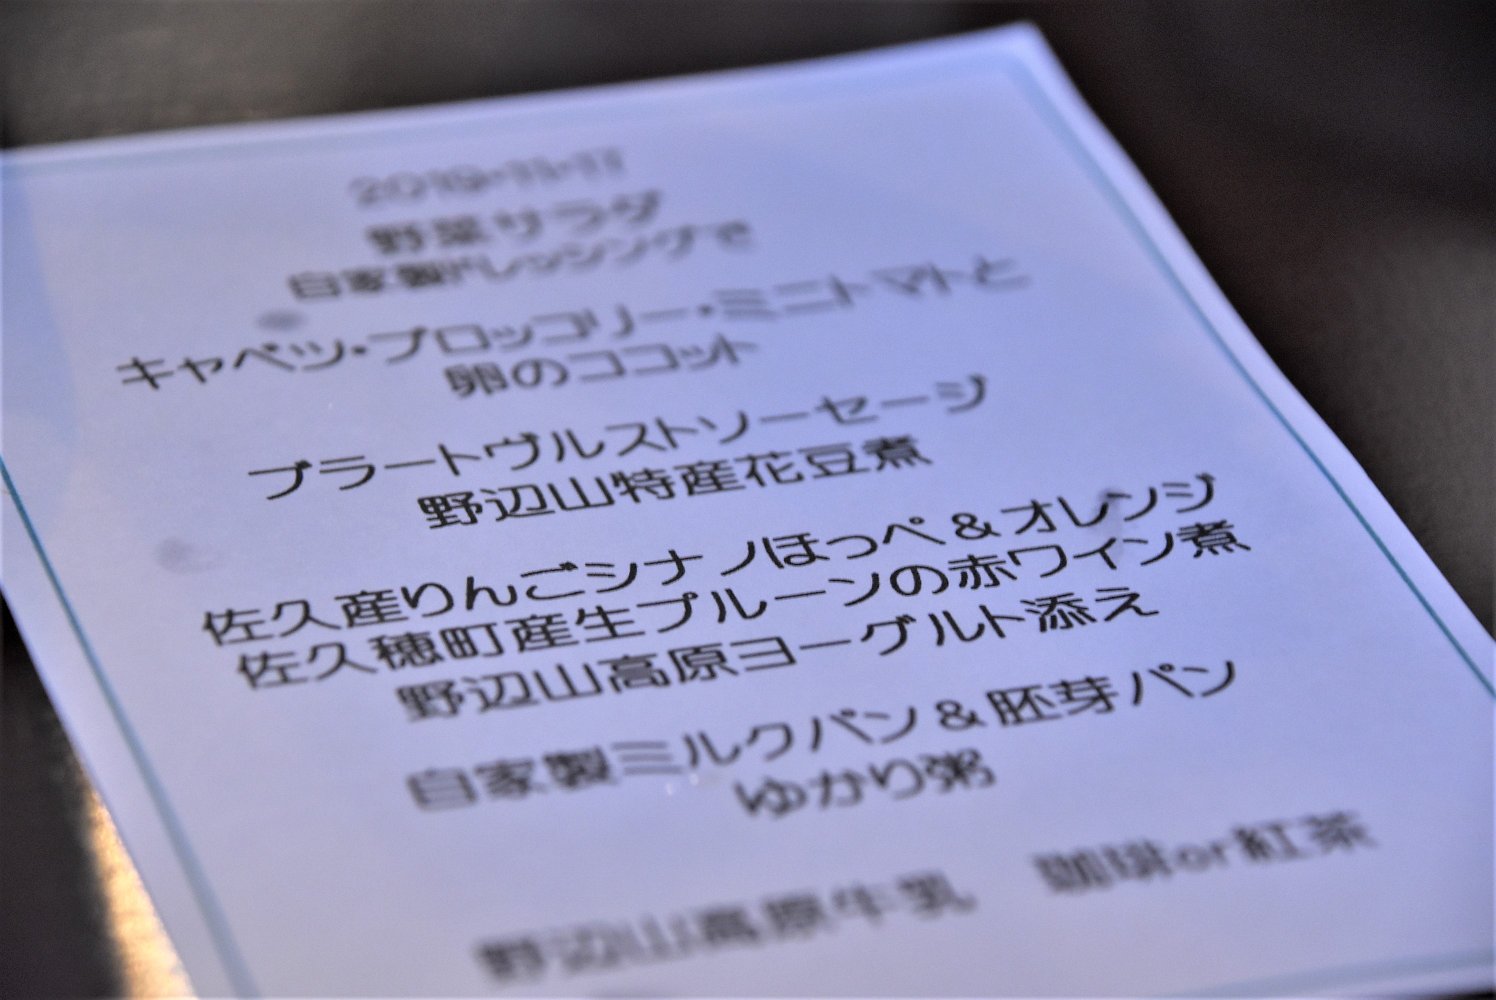 2019・11・11
野菜サラダ
自家製ドレッシングで
キャベツ・ブロッコリー・ミニトマトと
卵のココット
ブラートヴルストソーセージ
野辺山特産花豆煮
佐久産りんごシナノほっぺ＆オレンジ
佐久穂町産生プルーンの赤ワイン煮
野辺山高原ヨーグルト添え
自家製ミルクパン＆胚芽パン
ゆかり粥
野辺山高原牛乳　珈琲or紅茶